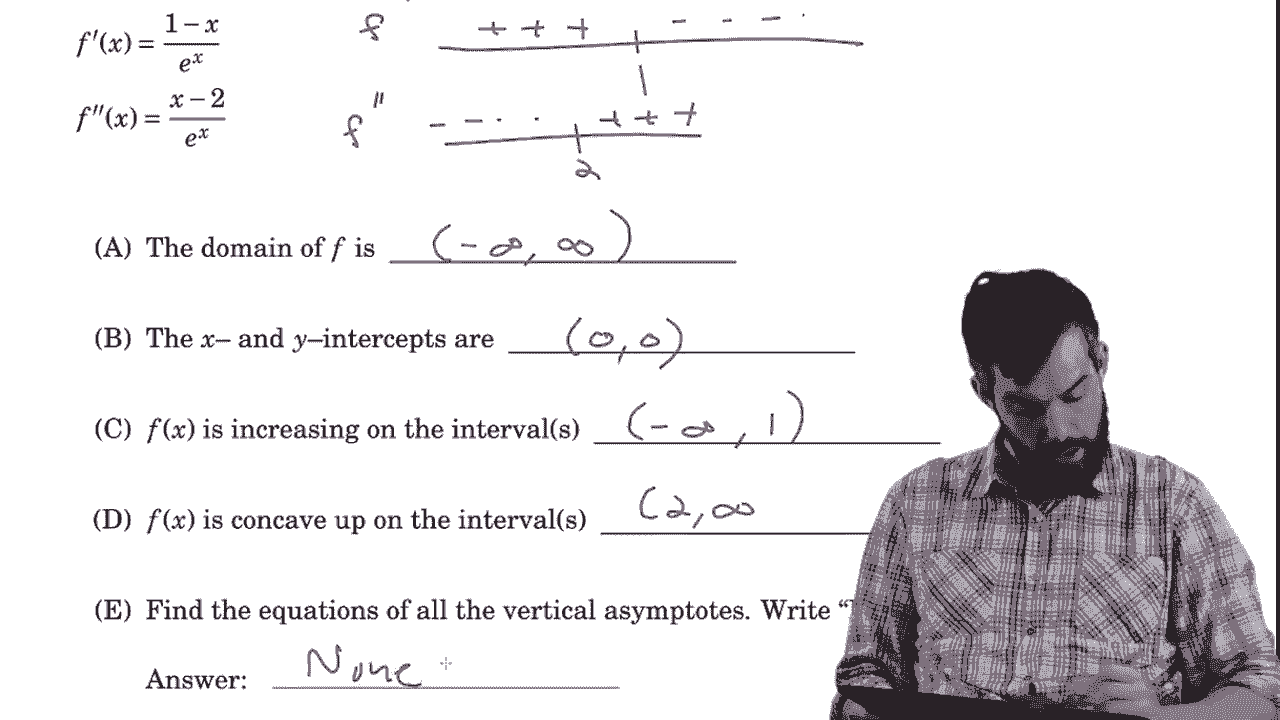 f′(x) = (1 − x)/eˣ f + + + - - - .
1
f″(x) = (x − 2)/eˣ f" - - . . + + +
2
(A) The domain of f is (-∞, ∞)
(B) The x– and y–intercepts are (0,0)
(C) f(x) is increasing on the interval(s) (-∞, 1)
(D) f(x) is concave up on the interval(s) (2,∞
(E) Find the equations of all the vertical asymptotes. Write “
Answer: None